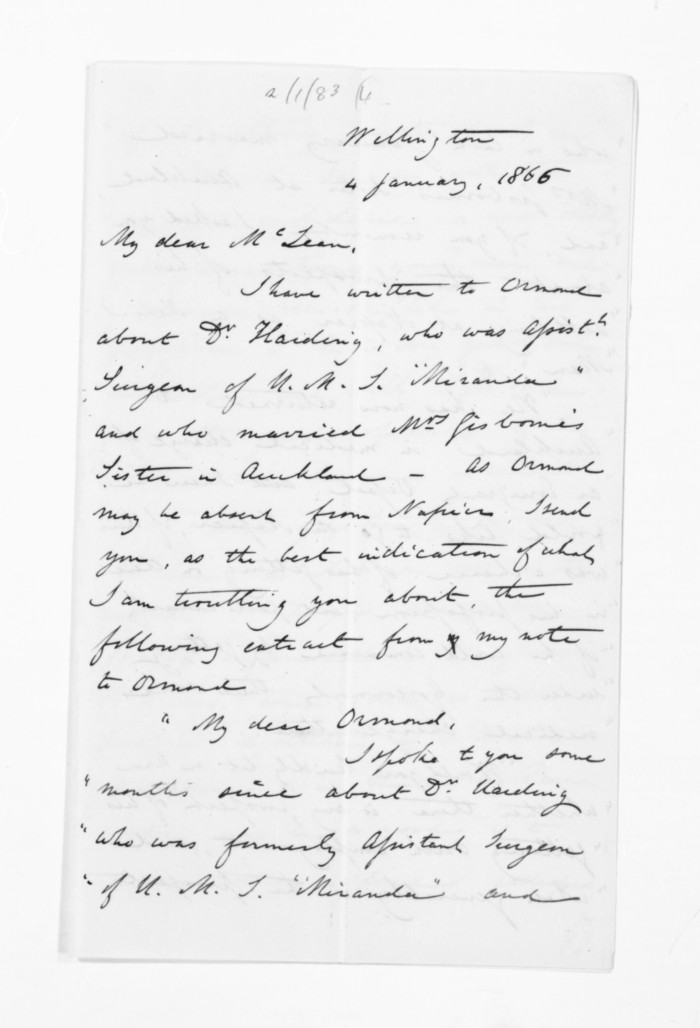 2/1/83 4
Wellington
4 January, 1866
My dear McLean,
I have written to Ormond
about Dr. Harding, who was Assist.
Surgeon of H. M. S. "Miranda"
and who married Mrs Gisborne's
Sister in Auckland – As Ormond
may be absent from Napier, I send
you, as the best indication of what
I am troubling you about, the
following extract from my note
to Ormond
"My dear Ormond,
I spoke to you some
"months since about Dr. Harding
"who was formerly Assistant Surgeon
"of H. M. S. "Miranda" and